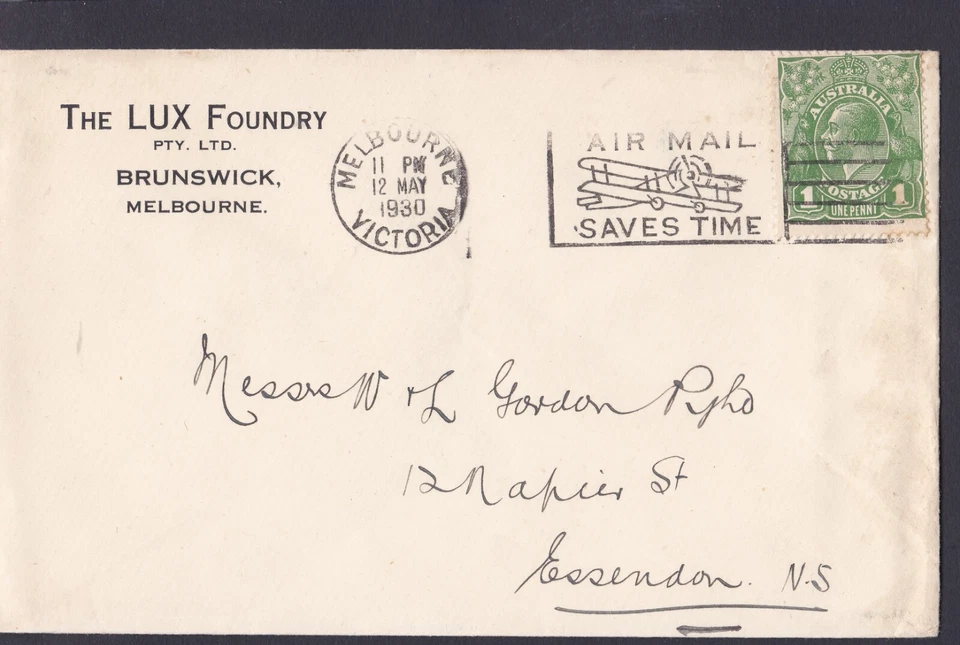 The LUX Foundry
PTY. LTD.
BRUNSWICK,
MELBOURNE.
MELBOURNE
11 PM
12 MAY
1930
VICTORIA
AIR MAIL
SAVES TIME
AUSTRALIA
POSTAGE
1 1
ONE PENNY
Messrs W & L Gordon
12 Napier St
Essendon. N.S